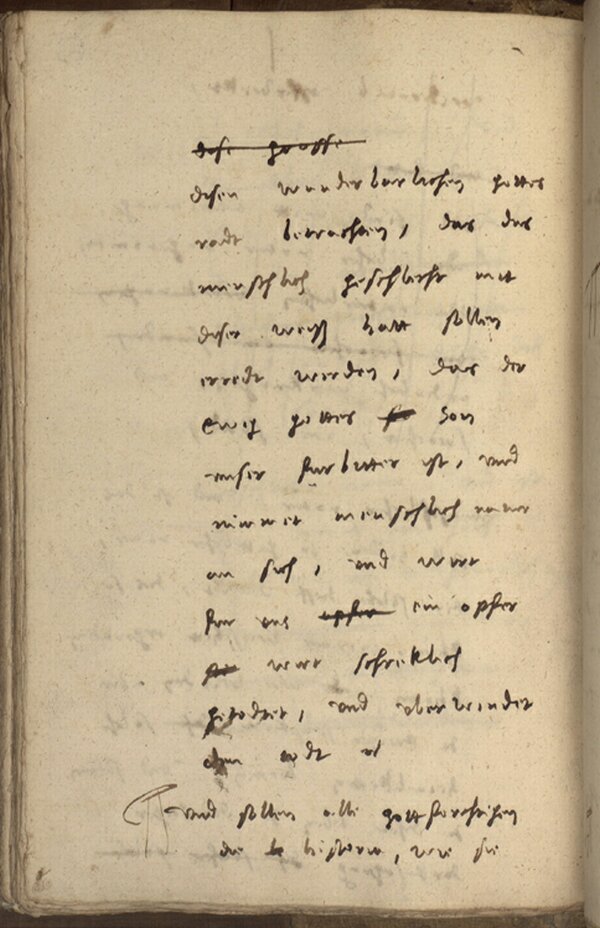 dise grosse
disen wunderbarlichen gottes
radt betrachten, das das
menschlich geschlecht mit
diser weiß hatt sollen
erredt werden, das der
Ewig gottes so Son
unser furbitter ist, und
nimmet menschlich natur
an sich, und wirt
fur uns opfer ein opfer
wirt schreklich
getodtet, und uberwindet
den todt
und sollen alle gottforchtigen
die historia, wie sie